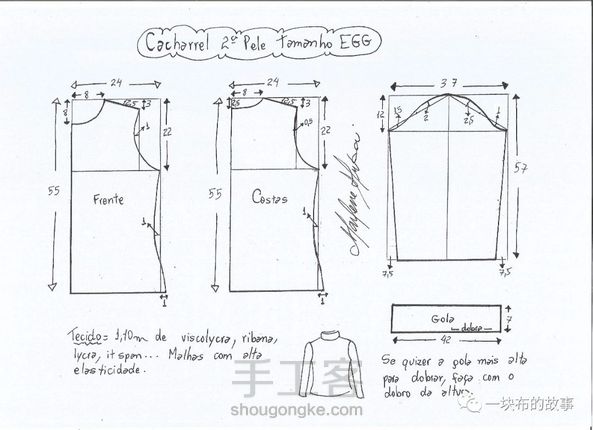 Cacharrel 2ª Pele Tamanho EGG
24
8
12,5
3
8
1
22
55
Frente
1
1
24
2,5
8
12,5
3
0,5
22
55
Costas
1
1
37
12
1,5
2
2,5
1
57
7,5
7,5
Gola
dobra
7
42
Tecido = 1,10m de viscolycra, ribana,
lycra, it span... Malhas com alta
elasticidade.
Se quizer a gola mais alta
para dobrar, faça com o
dobro da altura.
手工客
shougongke.com
一块布的故事